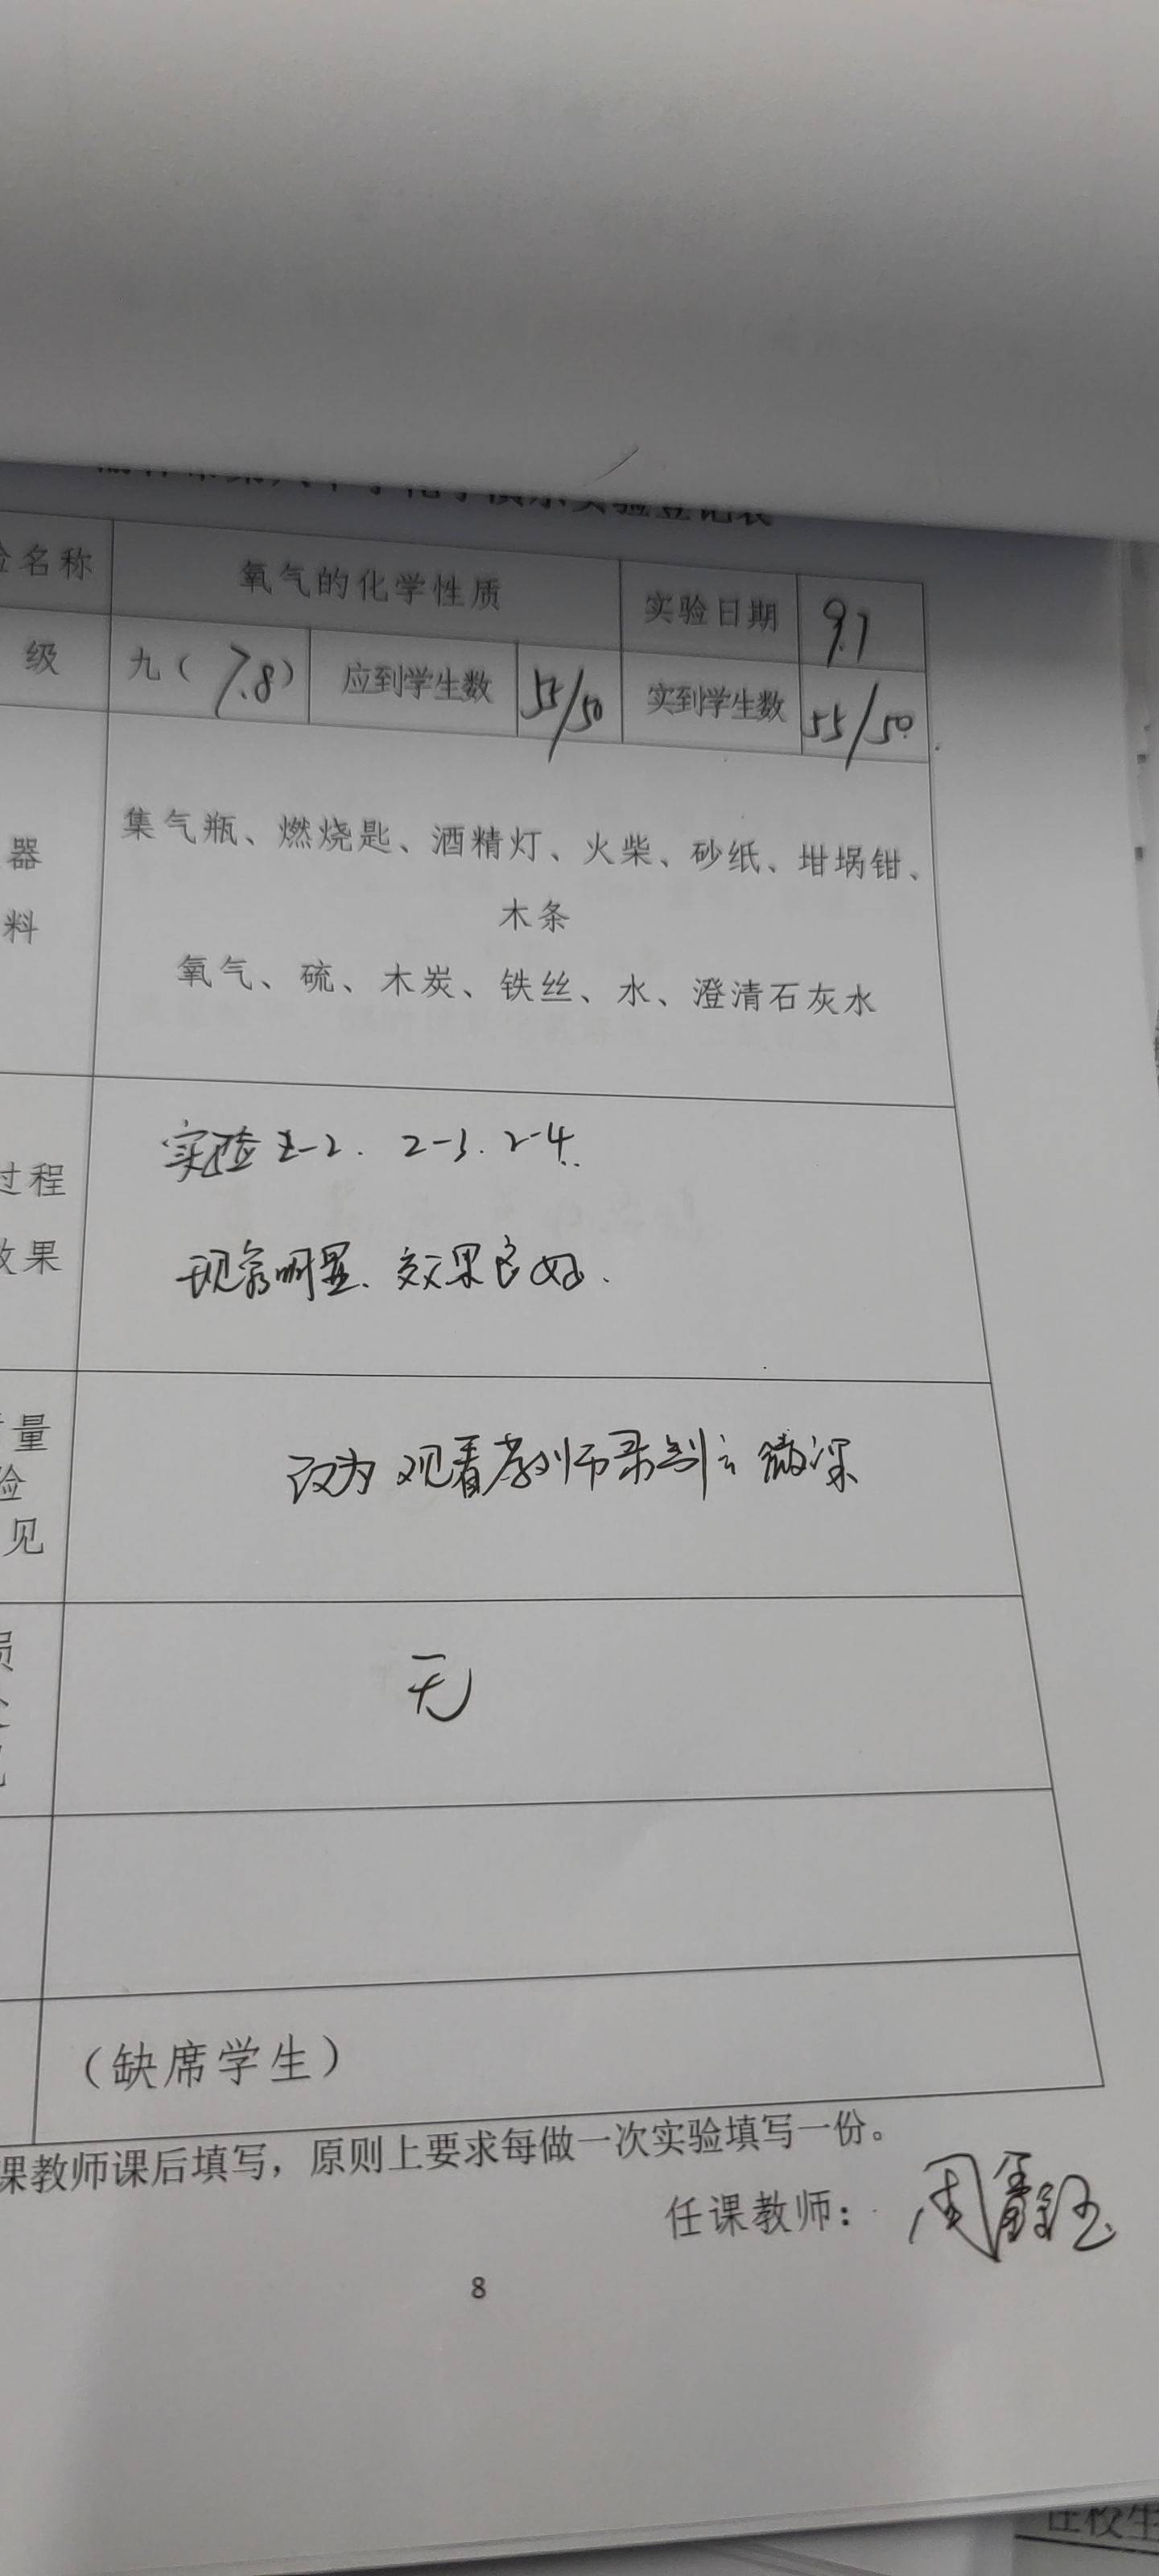 名称 氧气的化学性质 实验日期 9.7
级 九（7.8） 应到学生数 55/50 实到学生数 55/50
器 集气瓶、燃烧匙、酒精灯、火柴、砂纸、坩埚钳、
木条
料 氧气、硫、木炭、铁丝、水、澄清石灰水
实验2-2. 2-3. 2-4.
过程
效果 现象明显、效果良好.
量
验 改为观看教师录制 微课
见
无
（缺席学生）
课教师课后填写，原则上要求每做一次实验填写一份。
任课教师：周
8
在校生